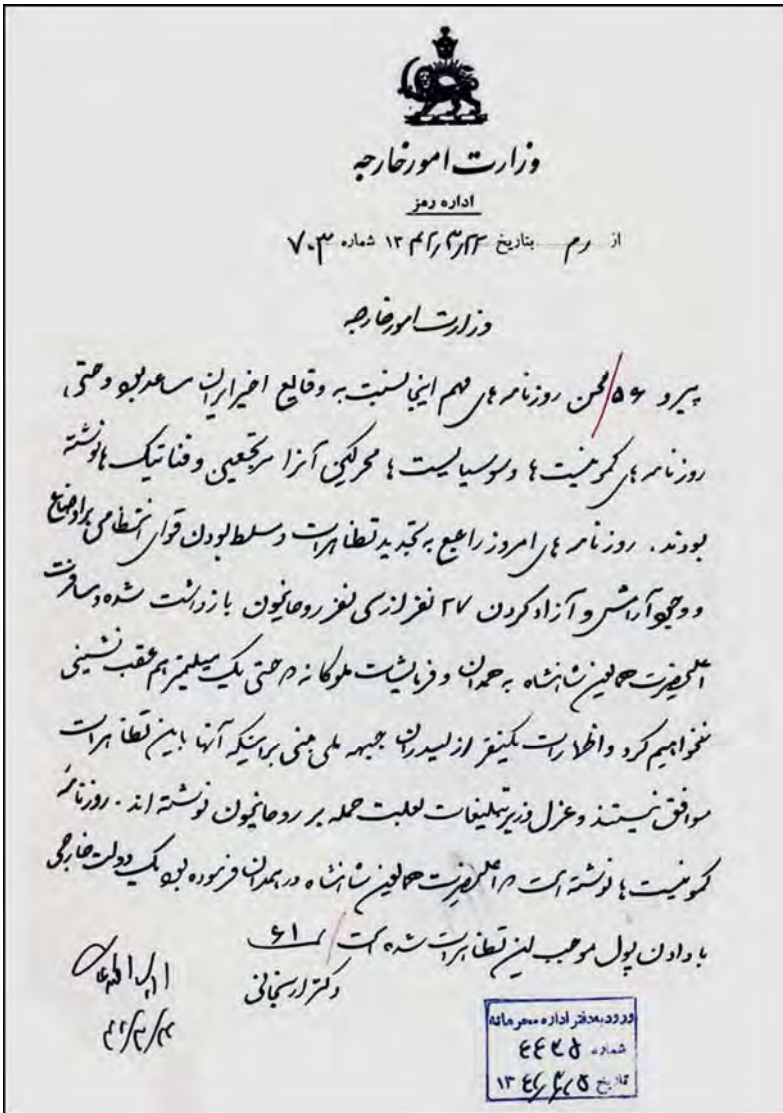 وزارت امورخارجه
اداره رمز
از رم بتاریخ ۱۳۴۲/۳/۲۳ شماره ۷۰۳
وزارت امورخارجه
پیرو ۵۶ لحن روزنامه های مهم اینجا نسبت به وقایع اخیر ایران مساعد بود و حتی
روزنامه های کمونیست ها و سوسیالیست ها محرکین آنرا مرتجعین و فناتیک ها نوشته
بودند. روزنامه های امروز راجع به تجدید تظاهرات و مسلط بودن قوای انتظامی بر اوضاع
و وجود آرامش و آزاد کردن ۲۷ نفر از سی نفر روحانیون بازداشت شده و مسافرت
اعلیحضرت همایون شاهنشاه به همدان و فرمایشات ملوکانه «حتی یک میلیمتر هم عقب نشینی
نخواهیم کرد و اظهارات یکنفر از لیدران جبهه ملی مبنی بر اینکه آنها باین تظاهرات
موافق نیستند و عزل وزیر تبلیغات بعلت حمله بر روحانیون نوشته اند. روزنامه
کمونیست ها نوشته است «اعلیحضرت همایون شاهنشاه در همدان فرموده بود یک دولت خارجی
با دادن پول موجب این تظاهرات شده است ۶۱
دکتر ارسنجانی
ورود بدفتر اداره محرمانه
شماره ۴۴۳۵
تاریخ